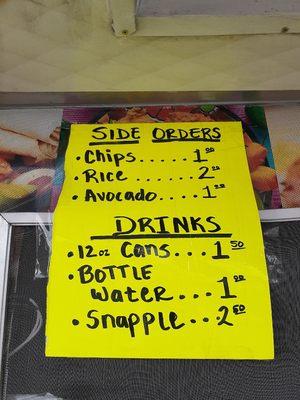 SIDE ORDERS
• Chips..... 1.00
• Rice...... 2.00
• Avocado.... 1.00
DRINKS
• 12oz Cans... 1.50
• BOTTLE
Water... 1.00
• Snapple... 2.50